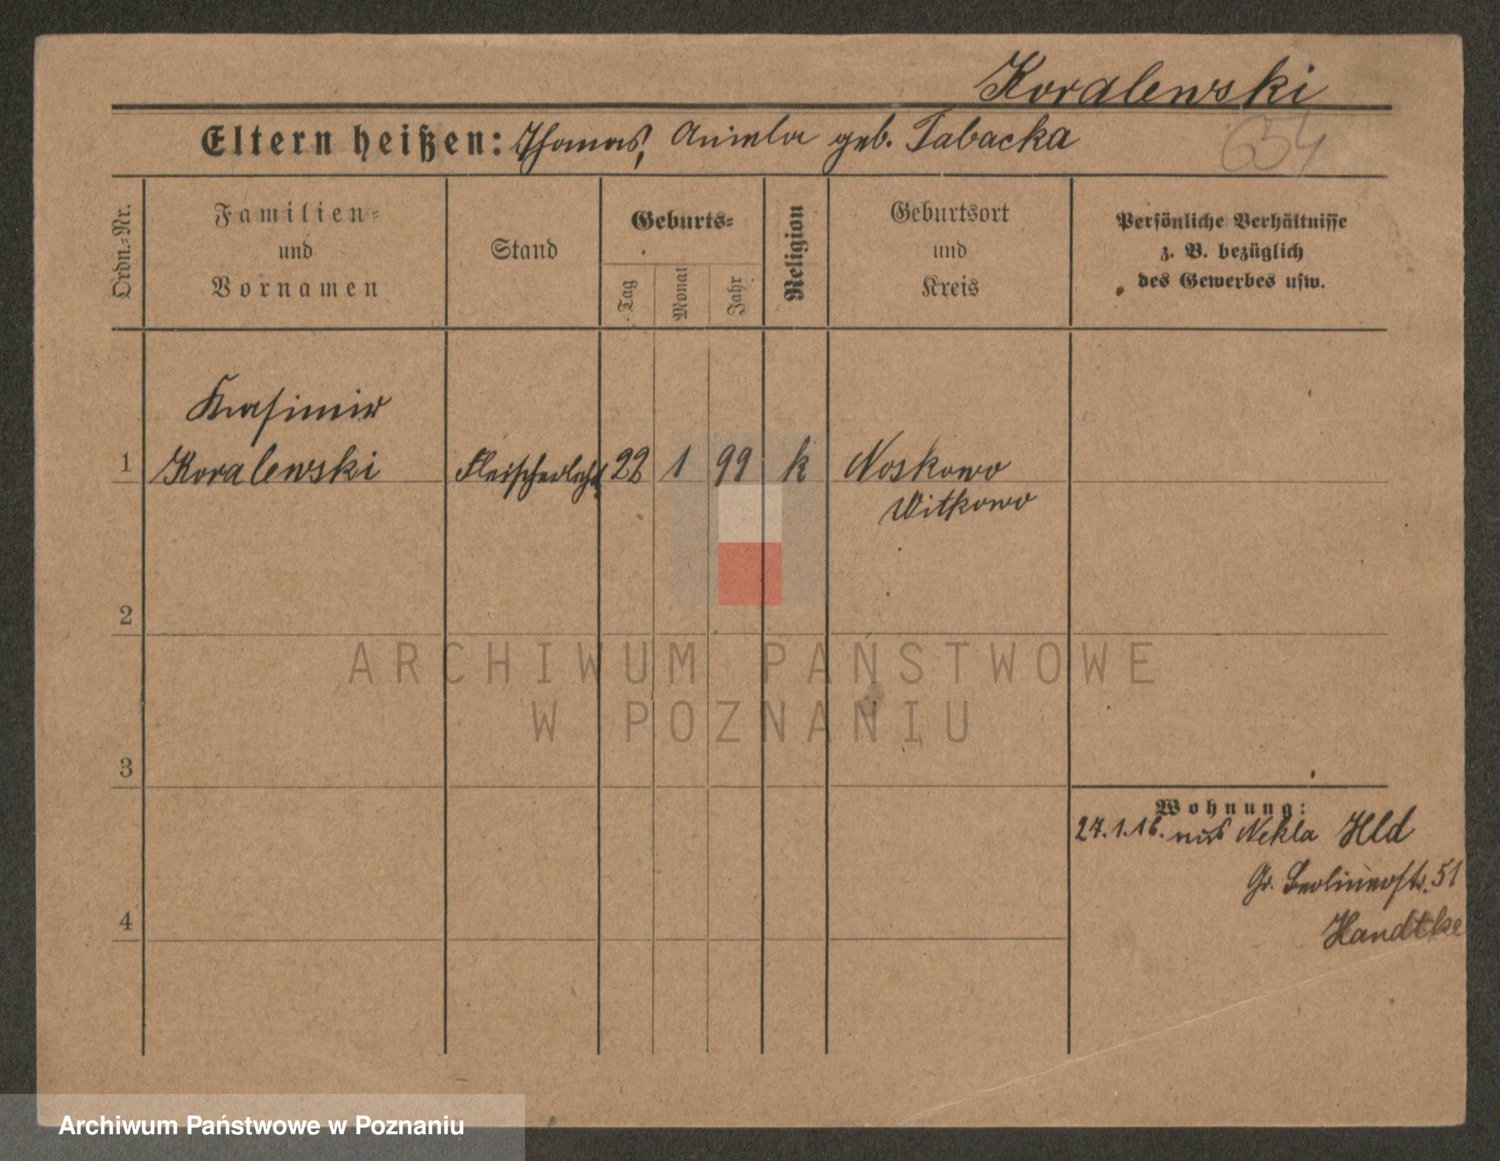 Koralewski
Eltern heißen: Thomas, Aniela geb. Tabacka
654
Ordn.=Nr.
Familien=
und
Vornamen
Stand
Geburts=
Tag
Monat
Jahr
Religion
Geburtsort
und
Kreis
Persönliche Verhältnisse
z. B. bezüglich
des Gewerbes usw.
Kasimir
1 Koralewski Fleischerlehrl. 22 1 99 k Noskowo
Witkowo
2
ARCHIWUM PAŃSTWOWE
W POZNANIU
3
Wohnung:
27.1.16. aus Nekla Hld
Gr. Berlinerstr. 51
4
Handtke
Archiwum Państwowe w Poznaniu